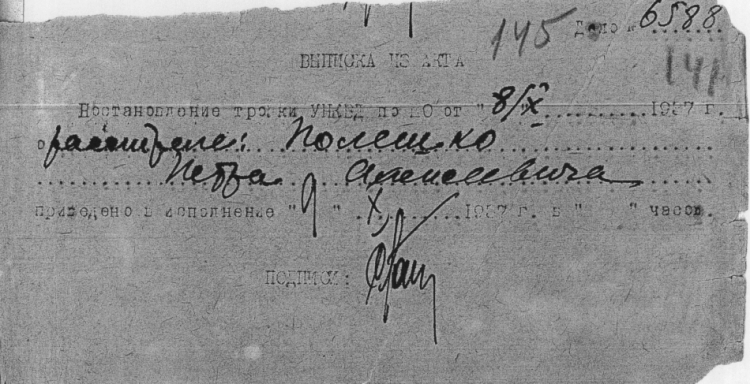 145 Дело № 6588
ВЫПИСКА ИЗ АКТА
141
Постановление тройки УНКВД по МО от "8/X" 1937 г.
о расстреле: Полешко
Петра Алексеевича
приведено в исполнение "9" X 1937 г. в " " часов.
ПОДПИСИ: